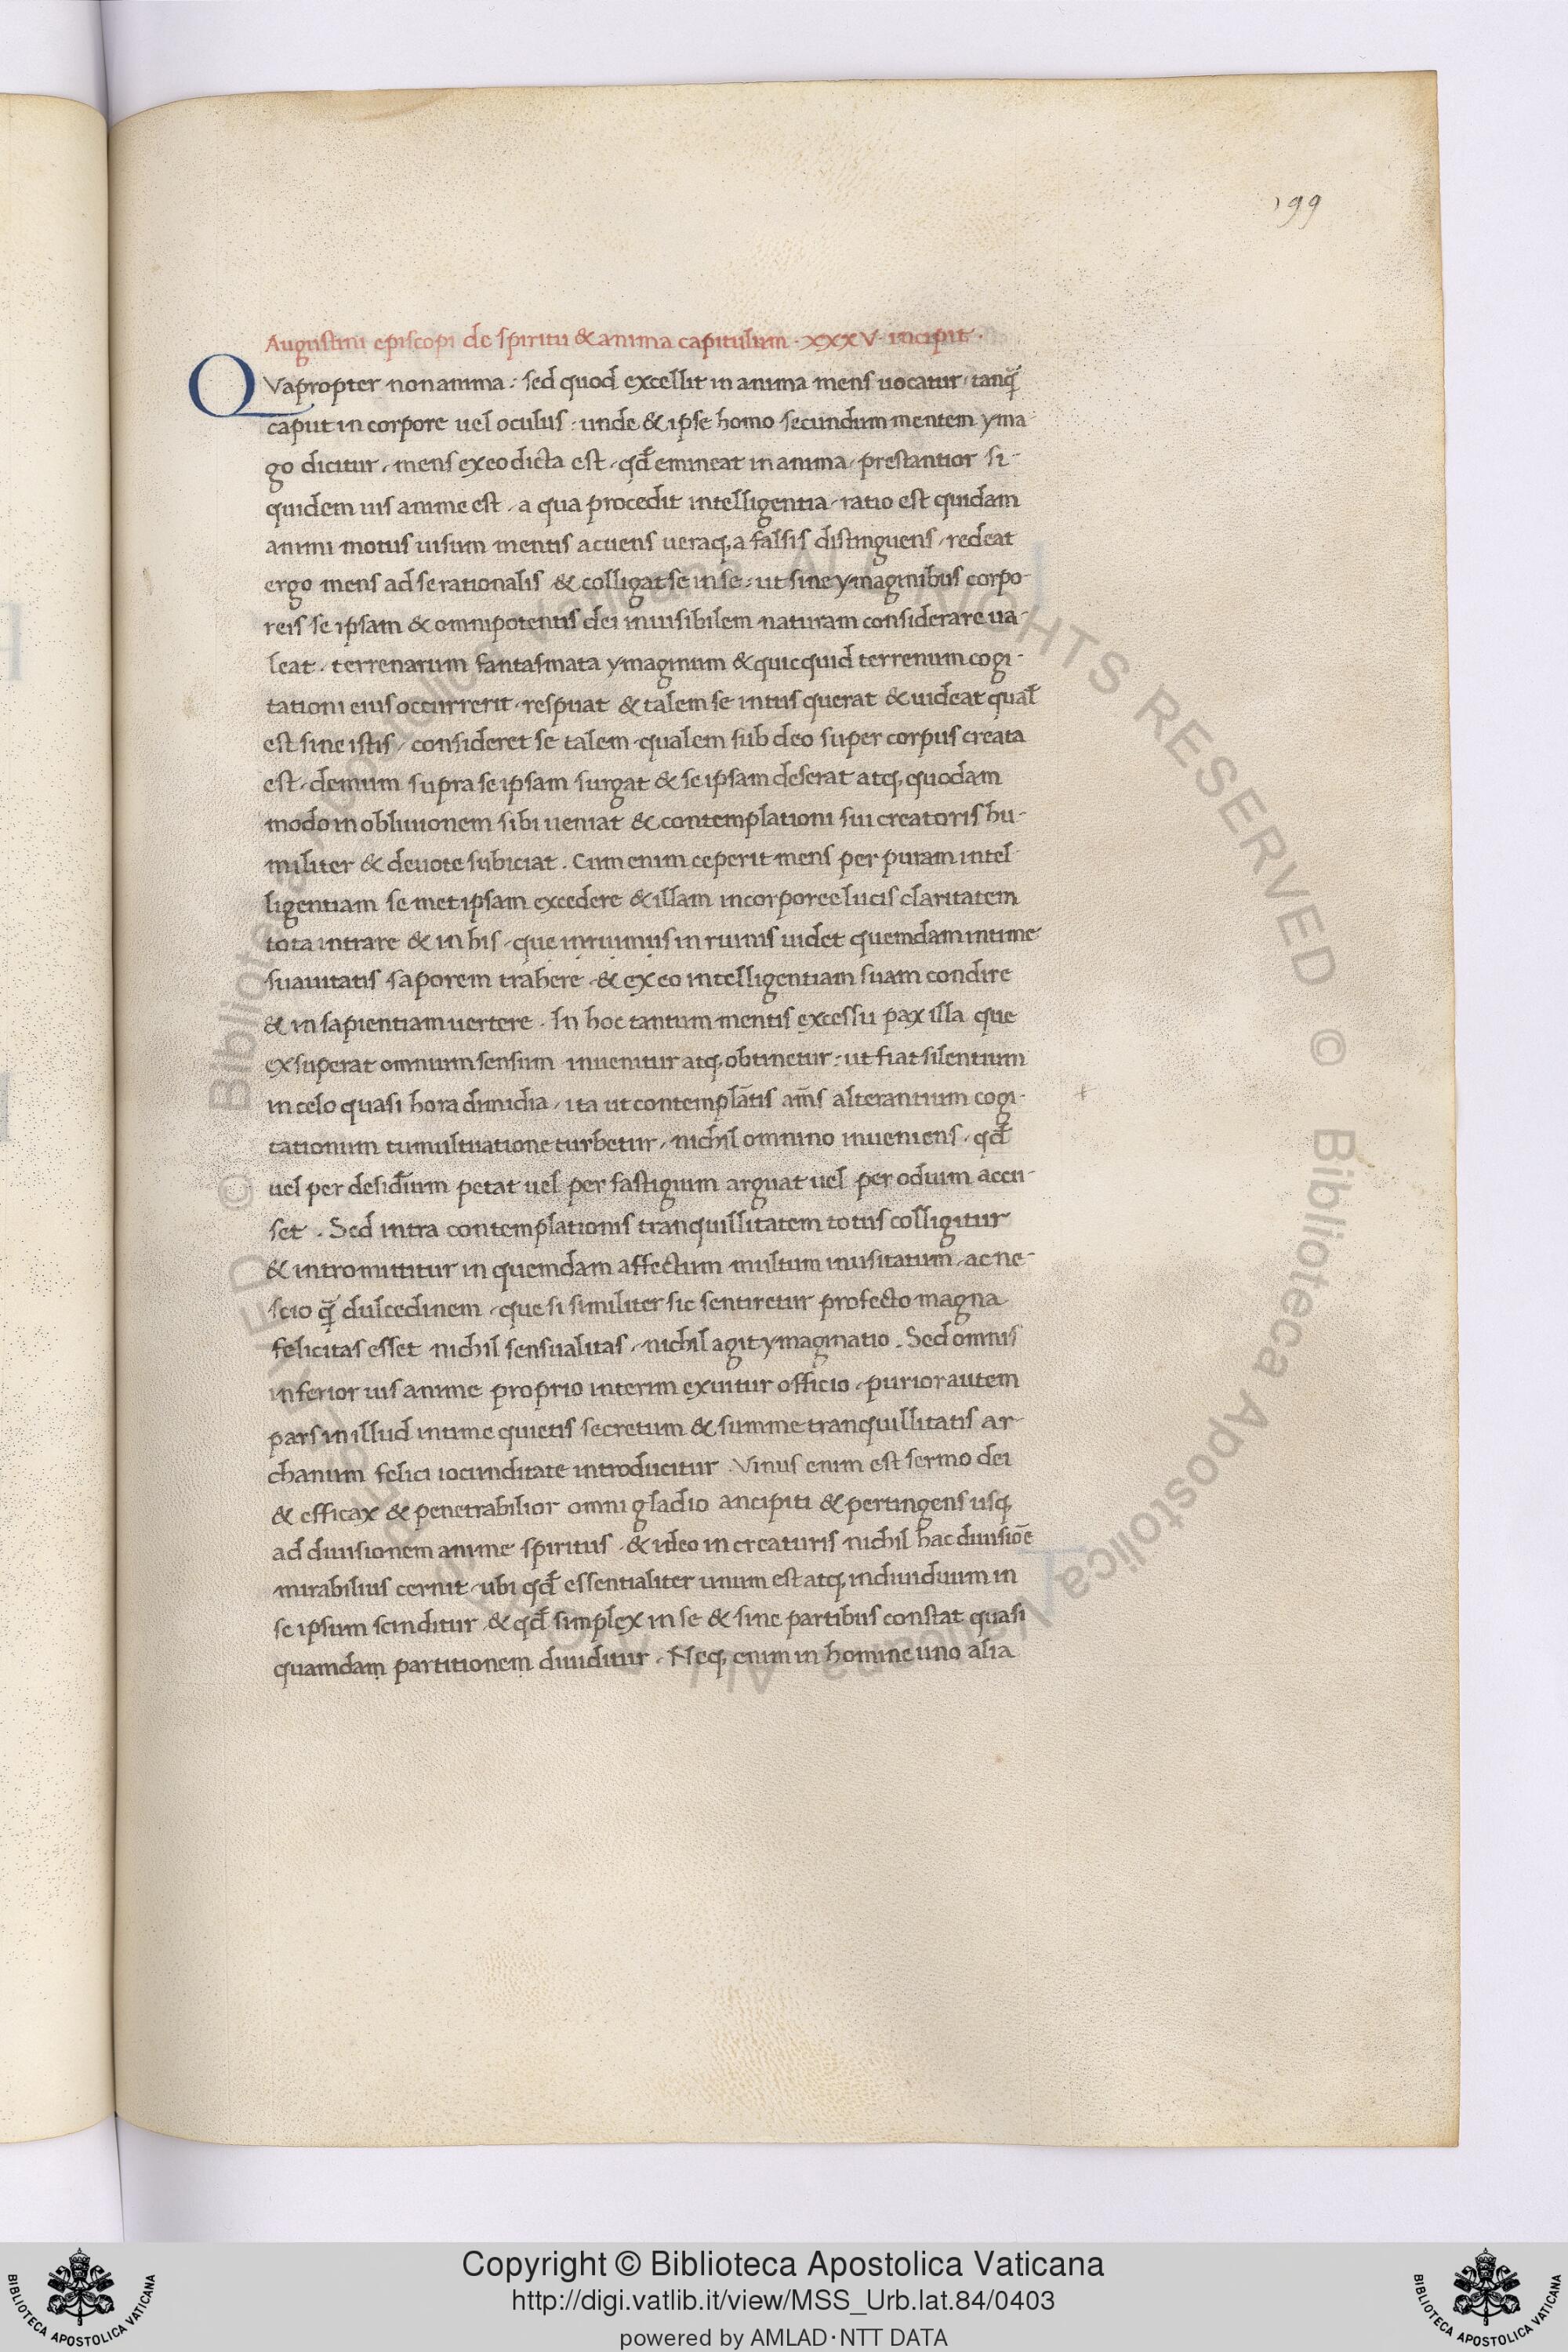 199
Augustini episcopi de spiritu & anima capitulum · XXXV · incipit ·
QVapropter non anima : sed quod excellit in anima mens uocatur / tanq̃
caput in corpore uel oculus : unde & ipse homo secundum mentem yma
go dicitur / mens ex eo dicta est / qđ emineat in anima / prestantior si-
quidem uis anime est / a qua procedit intelligentia / ratio est quidam
animi motus uisum mentis acuens ueraq; a falsis distinguens / redeat
ergo mens ad se rationalis & colligat se in se / ut sine ymaginibus corpo-
reis se ipsam & omnipotentis dei inuisibilem naturam considerare ua-
leat / terrenarum fantasmata ymaginum & quicquid terrenum cogi-
tationi eius occurrerit / respuat & talem se intus querat & uideat qual̃
est sine istis / consideret se talem qualem sub deo super corpus creata
est / demum supra se ipsam surgat & se ipsam deserat atq; quodam
modo in obliuionem sibi ueniat & contemplationi sui creatoris hu-
militer & deuote subiciat . Cum enim ceperit mens per puram intel-
ligentiam se met ipsam excedere & illam incorporee lucis claritatem
tota intrare & in his / que in ruimus in ruinis uidet quemdam intime
suauitatis saporem trahere / & ex eo intelligentiam suam condire
& in sapientiam uertere . In hoc tantum mentis excessu pax illa que
exsuperat omnium sensum inuenitur atq; obtinetur : ut fiat silentium
in celo quasi hora dimidia / ita ut contemplãtis am̃s alterantium cogi-
tationum tumultuatione turbetur / nichil omnino inueniens / qđ
uel per desid̃ium petat uel per fastigium arguat uel per odium accu-
set . Sed intra contemplationis tranquillitatem totus colligitur
& intromittitur in quemdam affectum multum inusitatum / ac ne-
scio q̃ dulcedinem / que si similiter sic sentiretur profecto magna
felicitas esset nichil sensualitas / nichil agit ymaginatio . Sed omnis
inferior uis anime proprio interim exuitur officio / purior autem
pars in illud intime quietis secretum & summe tranquillitatis ar-
chanum felici iocunditate introducitur . Viuus enim est sermo dei
& efficax & penetrabilior omni gladio ancipiti & pertingens usq;
ad diuisionem anime spiritus / & ideo in creaturis nichil hac diuisiõe
mirabilius cernit / ubi qđ essentialiter unum est atq; indiuiduum in
se ipsum scinditur & qđ simplex in se & sine partibus constat quasi
quamdam partitionem diuiditur . Neq; enim in homine uno alia
© Biblioteca Apostolica Vaticana ALL RIGHTS RESERVED © Biblioteca Apostolica Vaticana ALL RIGHTS RESERVED
Copyright © Biblioteca Apostolica Vaticana
http://digi.vatlib.it/view/MSS_Urb.lat.84/0403
powered by AMLAD·NTT DATA
BIBLIOTECA APOSTOLICA VATICANA
BIBLIOTECA APOSTOLICA VATICANA